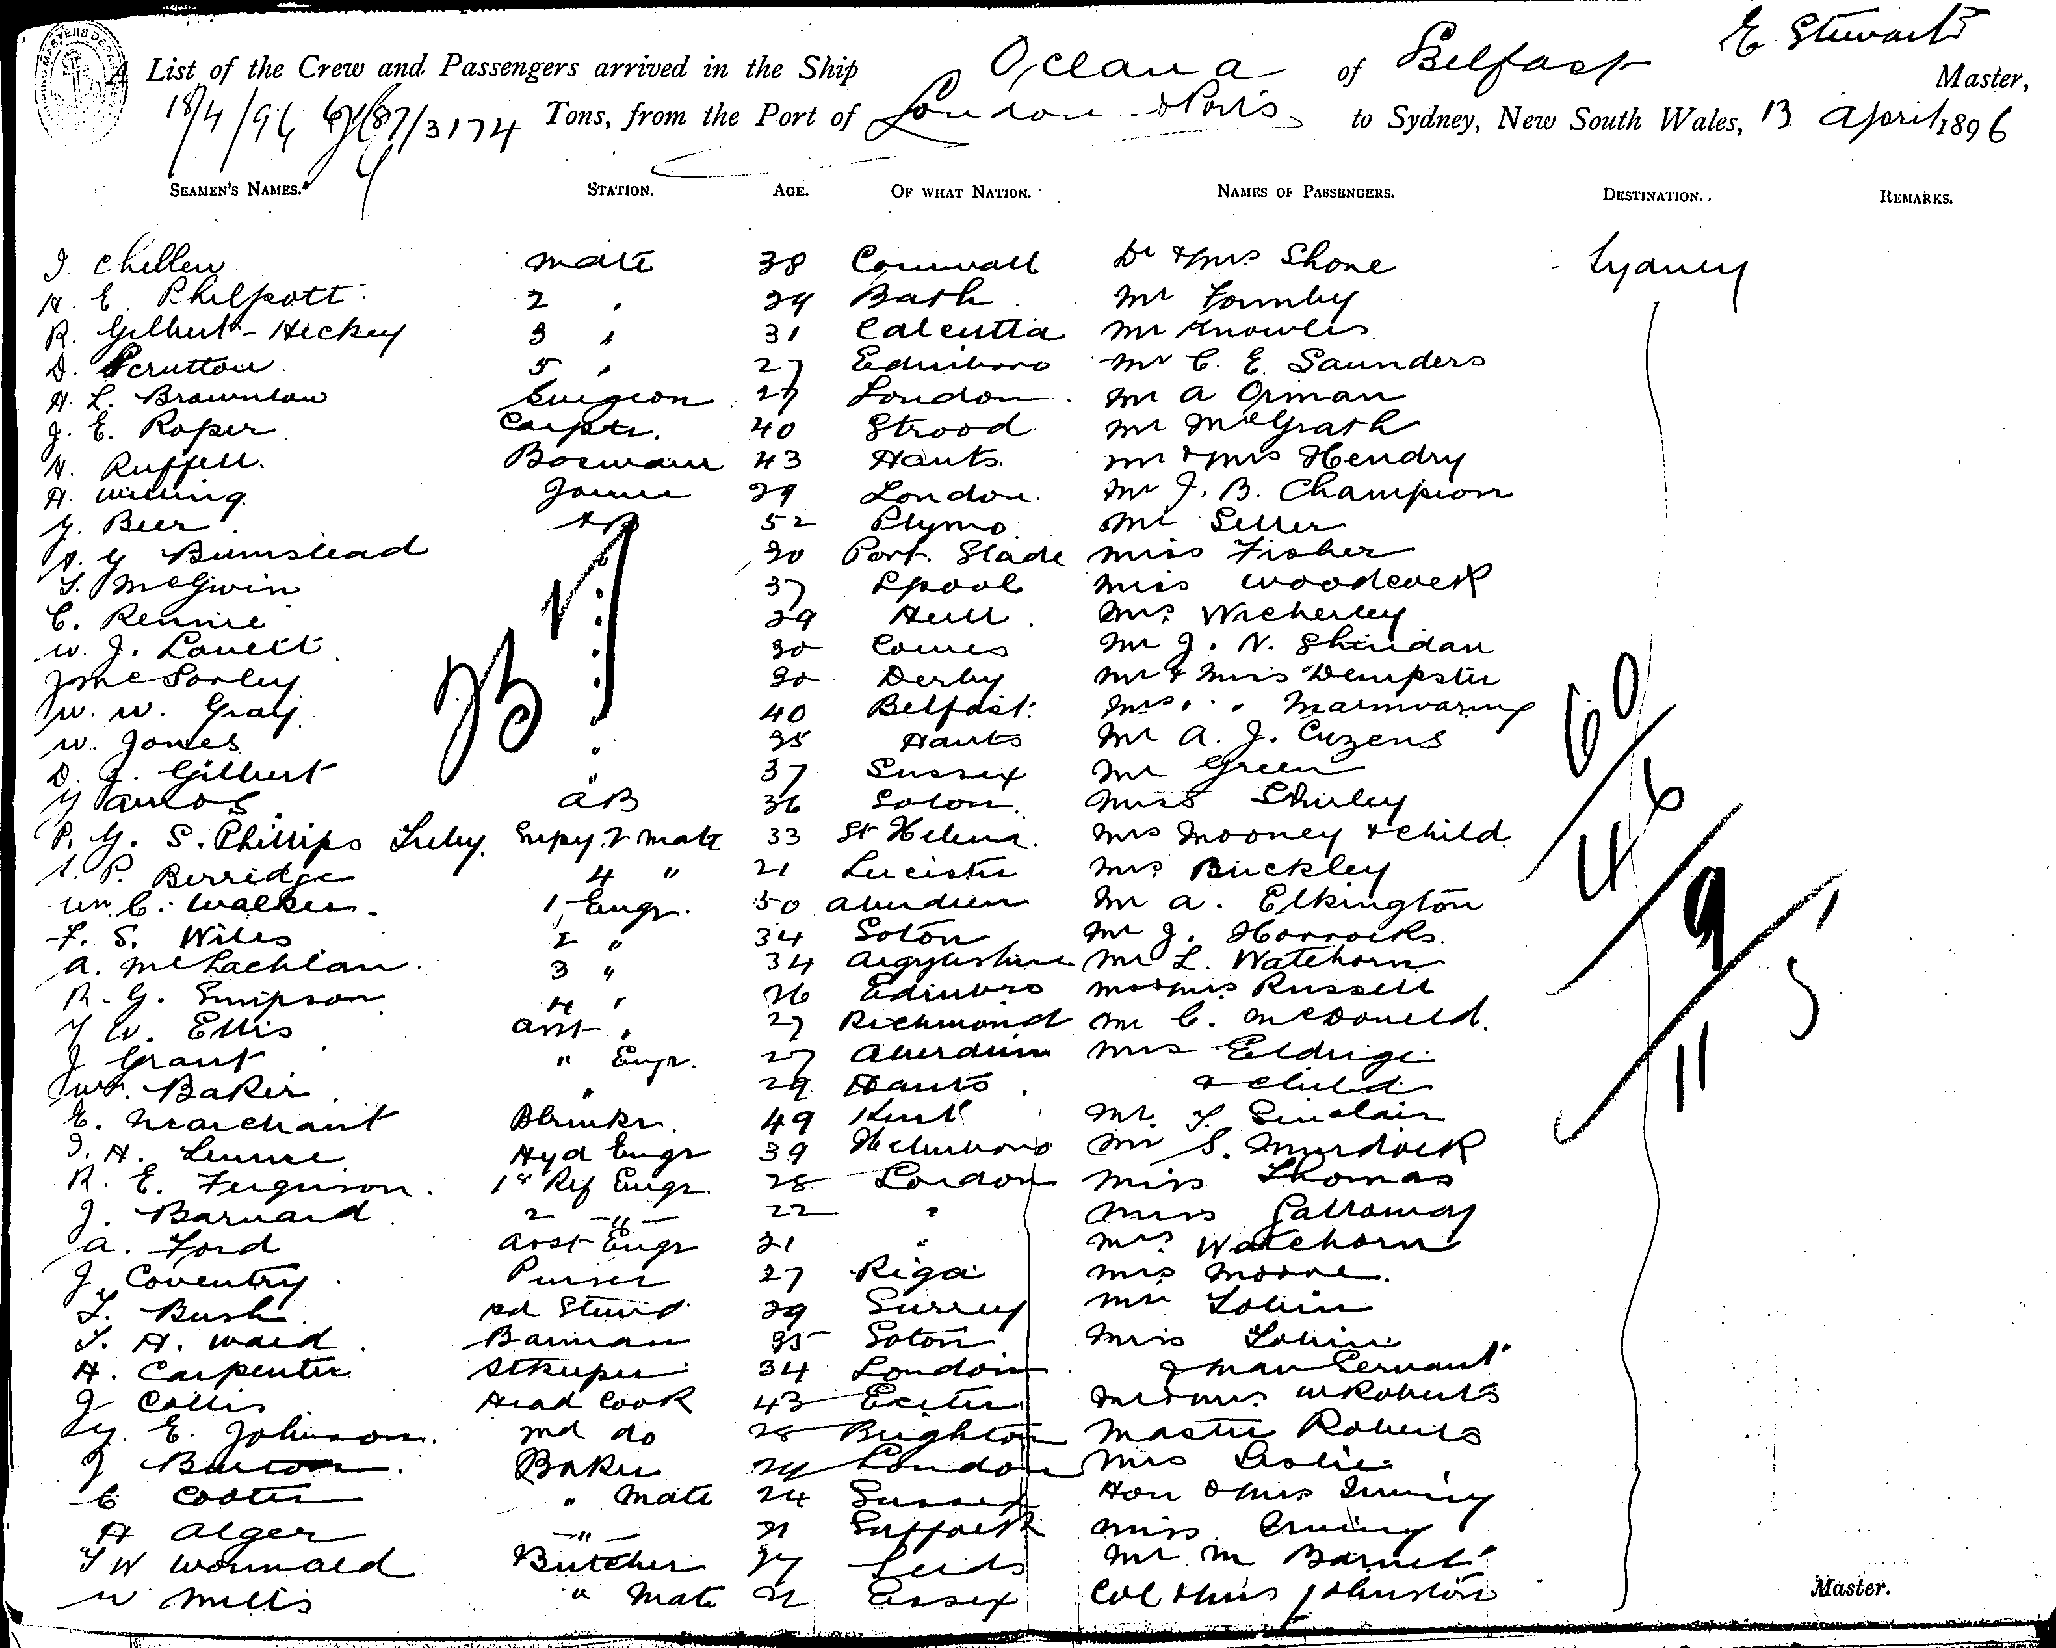 E Stewart
A List of the Crew and Passengers arrived in the Ship Oceana of Belfast Master,
18/4/96 3174 Tons, from the Port of London & Ports to Sydney, New South Wales, 13 April 1896
SEAMEN'S NAMES. STATION. AGE. OF WHAT NATION. NAMES OF PASSENGERS. DESTINATION. REMARKS.
mate 38 Cornwall Dr & Mrs Shone Sydney
H. E. Philpott 2 " 29 Bath Mr Formby
R. Gilbert-Hickey 3 " 31 Calcutta Mr Knowles
D. Scrutton 5 " 27 Edinboro Mr C. E. Saunders
H. L. Brownlow Surgeon 27 London Mr A Orman
J. E. Roper Carptr. 40 Strood Mr McGrath
H. Ruffell Boswain 43 Hants Mr & Mrs Hendry
H. Willing Joiner 29 London Mr J. B. Champion
G. Beer AB 52 Plymo Mr Seller
Bumstead 30 Port Slade Miss Fisher
McGivin 37 Lpool Miss Woodcock
C. Rennie 29 Hull Mrs Wicherley
W. J. Lovell 30 Cowes Mr J. N. Sheridan
J McSorley 30 Derby Mr & Miss Dempster
W. W. Gray 40 Belfast Mrs " " Mainwaring
W. Jones " 35 Hants Mr A. J. Cuzens
D. J. Gilbert " 37 Sussex Mr Green
Amos AB 36 Soton Miss Shirley
P. G. S. Phillips Luby Supy 2 mate 33 St Helena Mrs Mooney & child
P. Berridge 4 " 21 Leicester Mrs Buckley
Wm C. Walker 1 Engr. 50 Aberdeen Mr A. Elkington
F. S. Wiles 2 " 34 Soton Mr J. Horrocks
A. McLachlan 3 " 34 Argyleshire Mr L. Watchorn
R. G. Simpson 4 " 26 Edinbro Mr & Mrs Russell
W. Ellis asst " 27 Richmond Mr C. McDonald
J Grant " Engr. 27 Aberdeen Mrs Eldrige
Baker " 29 Hants & child
E. Marchant 49 Kent Mr Sinclair
Hyd Engr 39 Mr S. Murdock
R. E. Ferguson 1st Ref Engr 28 London Miss Thomas
J. Barnard 2 " 22 " Miss Galloway
A. Ford asst Engr 21 " Mrs Watchorn
J. Coventry Purser 27 Riga Mrs Moore
Bush 29 Surrey Mr
H. Ward Barman 35 Soton Miss
H. Carpenter Stkeeper 34 London & man Servant
J Collis Head Cook 43 Exeter Mr & Mrs W Roberts
E. Johnson 2nd do 28 Brighton Master Roberts
J Burton Baker 24 London Mrs Leslie
C Cooter " Mate 24 Sussex Hon & Mrs
H Alger " 21 Suffolk Miss
W Wormald Butcher 27 Leeds Mr M Barnet
W Mills " Mate 21 Essex Col & Mrs Johnston
Master.
23
60
46
9
11
5